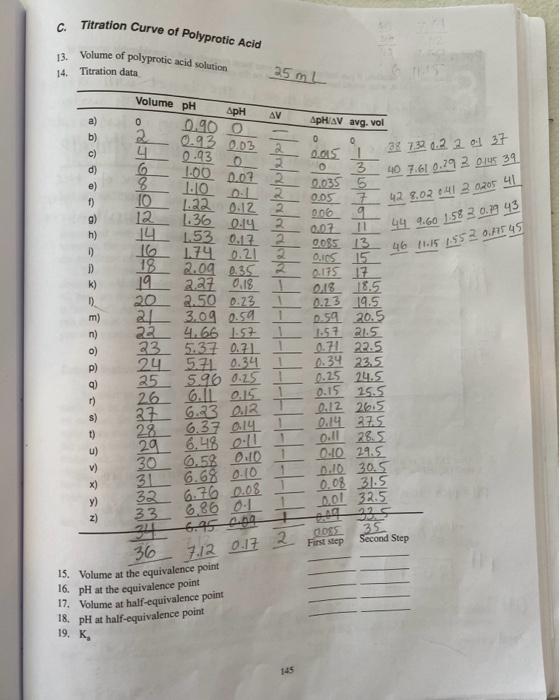 C. Titration Curve of Polyprotic Acid
13. Volume of polyprotic acid solution 25 mL
14. Titration data
Volume pH ΔpH ΔV ΔpH/ΔV avg. vol
a) 0 0.90 0 — 0 0
b) 2 0.93 0.03 2 0.015 1
c) 4 0.93 0 2 0 3
d) 6 1.00 0.07 2 0.035 5
e) 8 1.10 0.1 2 0.05 7
f) 10 1.22 0.12 2 0.06 9
g) 12 1.36 0.14 2 0.07 11
h) 14 1.53 0.17 2 0.085 13
i) 16 1.74 0.21 2 0.105 15
j) 18 2.09 0.35 2 0.175 17
k) 19 2.27 0.18 1 0.18 18.5
l) 20 2.50 0.23 1 0.23 19.5
m) 21 3.09 0.59 1 0.59 20.5
n) 22 4.66 1.57 1 1.57 21.5
o) 23 5.37 0.71 1 0.71 22.5
p) 24 5.71 0.34 1 0.34 23.5
q) 25 5.96 0.25 1 0.25 24.5
r) 26 6.11 0.15 1 0.15 25.5
s) 27 6.23 0.12 1 0.12 26.5
t) 28 6.37 0.14 1 0.14 27.5
u) 29 6.48 0.11 1 0.11 28.5
v) 30 6.58 0.10 1 0.10 29.5
x) 31 6.68 0.10 1 0.10 30.5
y) 32 6.76 0.08 1 0.08 31.5
z) 33 6.86 0.1 1 0.01 32.5
34 6.95 0.09 1 0.09 33.5
36 7.12 0.17 2 0.085 35
38 7.32 0.2 2 0.1 37
40 7.61 0.29 2 0.145 39
42 8.02 0.41 2 0.205 41
44 9.60 1.58 2 0.79 43
46 11.15 1.55 2 0.775 45
First step Second Step
15. Volume at the equivalence point
16. pH at the equivalence point
17. Volume at half-equivalence point
18. pH at half-equivalence point
19. Ka
145